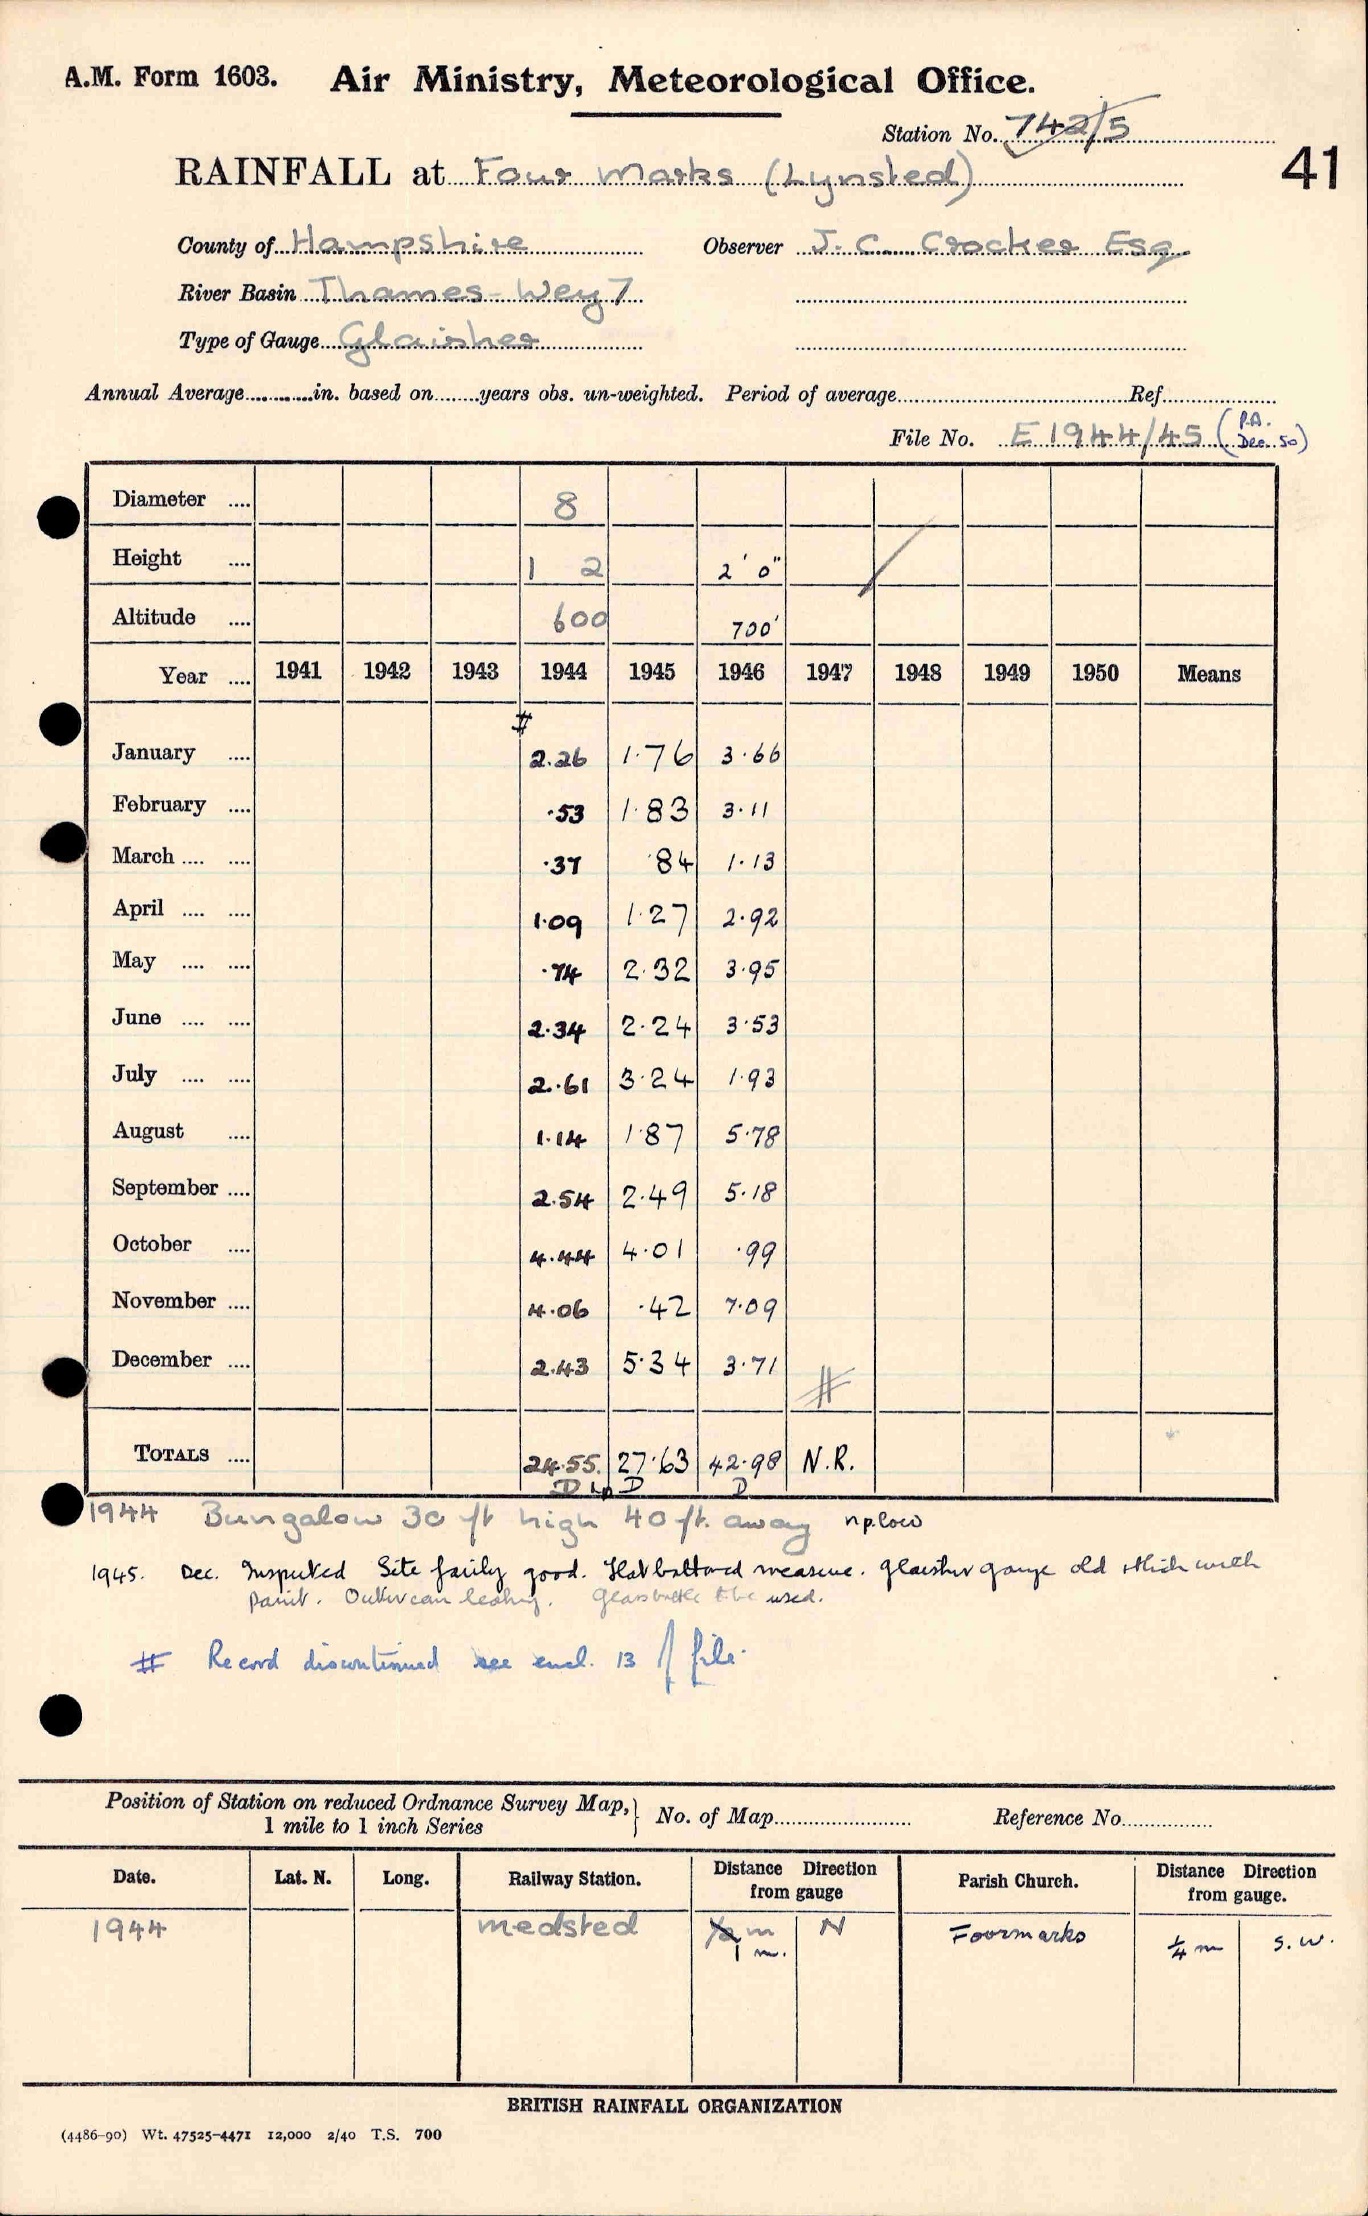 A.M. Form 1603. Air Ministry, Meteorological Office.
Station No. 742/5
41
RAINFALL at Four Marks (Lynsted)
County of Hampshire Observer J. C. Crocker Esq
River Basin Thames-Wey 7
Type of Gauge Glaisher
Annual Average............in. based on........years obs. un-weighted. Period of average........ Ref........
File No. E 1944/45 (P.A. Dec. 50)
Diameter .... 8
Height .... 1 2 2' 0"
Altitude .... 600 700'
Year .... 1941 1942 1943 1944 1945 1946 1947 1948 1949 1950 Means
#
January .... 2.26 1.76 3.66
February .... .53 1.83 3.11
March .... .... .37 .84 1.13
April .... .... 1.09 1.27 2.92
May .... .... .74 2.32 3.95
June .... .... 2.34 2.24 3.53
July .... .... 2.61 3.24 1.93
August .... 1.14 1.87 5.78
September .... 2.54 2.49 5.18
October .... 4.44 4.01 .99
November .... 4.06 .42 7.09
December .... 2.43 5.34 3.71 #
TOTALS .... 24.55 27.63 42.98 N.R.
D D D
1944 Bungalow 30 ft high 40 ft. away
1945. Dec. Inspected Site fairly good. Flat bottomed measure. Glaisher gauge old thick with
paint. Outer can leaking. Glass bottle to be used.
# Record discontinued see encl. 13 of file.
Position of Station on reduced Ordnance Survey Map, } No. of Map........ Reference No........
1 mile to 1 inch Series
Date. Lat. N. Long. Railway Station. Distance Direction from gauge Parish Church. Distance Direction from gauge.
1944 Medsted ½ m N Fourmarks ¼ m S.W.
1 m.
BRITISH RAINFALL ORGANIZATION
(4486-90) Wt. 47525-4471 12,000 2/40 T.S. 700